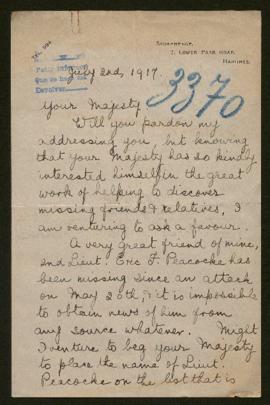 STONEHENGE,
7, LOWER PARK ROAD,
HASTINGS.
July 2nd, 1917.
3370
Your Majesty
Will you pardon my
addressing you, but knowing
that your Majesty has so kindly
interested himself in the great
work of helping to discover
missing friends & relatives, I
am venturing to ask a favour.
A very great friend of mine,
2nd Lieut. Eric F. Peacocke has
been missing since an attack
on May 20th, & it is impossible
to obtain news of him from
any source whatever. Might
I venture to beg your Majesty
to place the name of Lieut.
Peacocke on the list that is